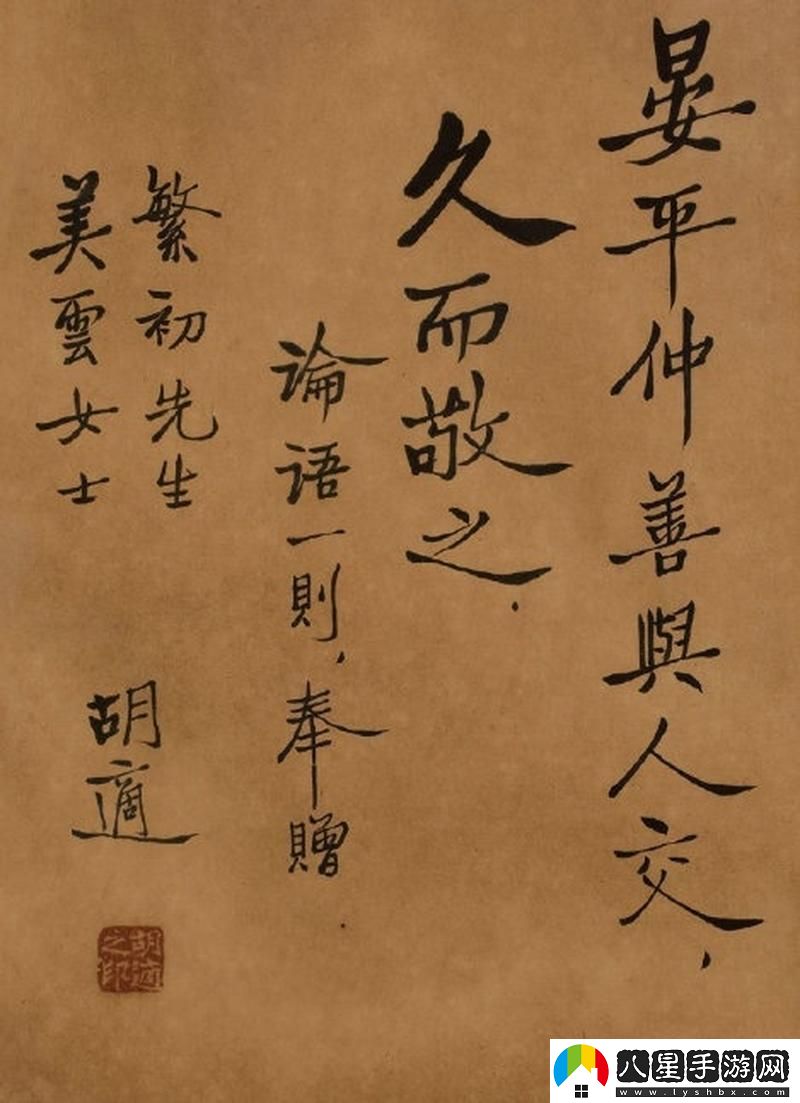 晏平仲善與人交，
久而敬之．
論语一則，奉贈
繁初先生
美雲女士
胡適
胡適之印
八星手游网
www.lyshbx.com